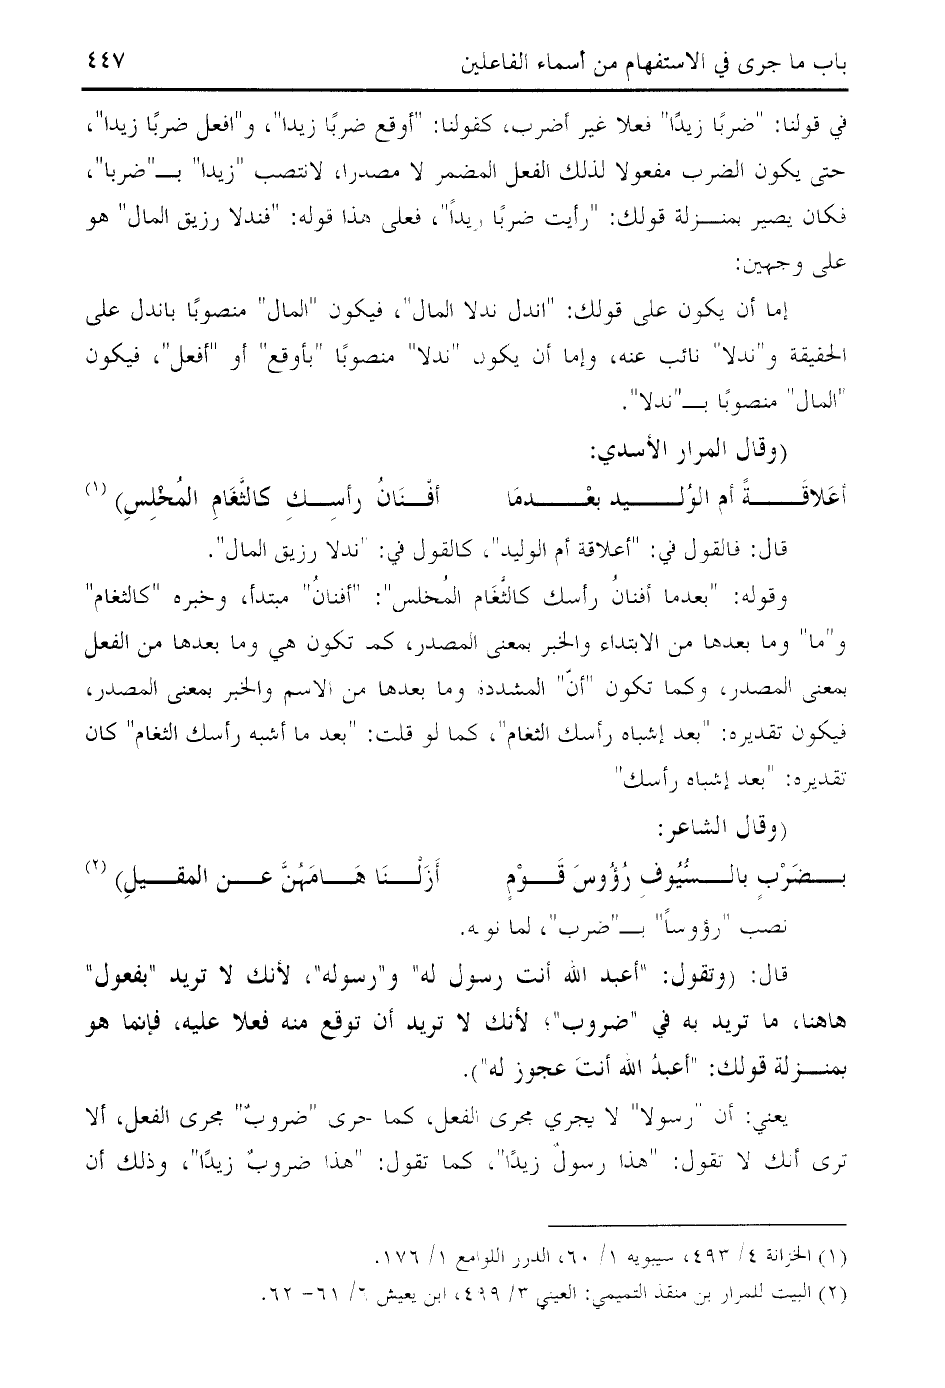 باب ما جرى في الاستفهام من أسماء الفاعلين ٤٤٧
في قولنا: "ضربًا زيدًا" فعلا غير أضرب، كقولنا: "أوقع ضربًا زيدا"، و"افعل ضربًا زيدا"،
حتى يكون الضرب مفعولا لذلك الفعل المضمر لا مصدرا، لانتصب "زيدا" بـ"ضربا"،
فكان يصير بمنـزلة قولك: "رأيت ضربًا زيداً"، فعلى هذا قوله: "فندلا رزيق المال" هو
على وجهين:
إما أن يكون على قولك: "اندل ندلا المال"، فيكون "المال" منصوبًا باندل على
الحقيقة و"ندلا" نائب عنه، وإما أن يكون "ندلا" منصوبًا "بأوقع" أو "أفعل"، فيكون
"المال" منصوبًا بـ"ندلا".
(وقال المرار الأسدي:
أعَلاقَـةً أم الوُلـيـد بعْـدمَا أفْـنَانُ رأسـك كالثَّغَامِ المُخْلِسِ) (١)
قال: فالقول في: "أعلاقة أم الوليد"، كالقول في: "ندلا رزيق المال".
وقوله: "بعدما أفنانُ رأسك كالثَّغَام المُخلس": "أفنانُ" مبتدأ، وخبره "كالثغام"
و"ما" وما بعدها من الابتداء والخبر بمعنى المصدر، كمـ تكون هي وما بعدها من الفعل
بمعنى المصدر، وكما تكون "أنّ" المشددة وما بعدها من الاسم والخبر بمعنى المصدر،
فيكون تقديره: "بعد إشباه رأسك الثغام"، كما لو قلت: "بعد ما أشبه رأسك الثغام" كان
تقديره: "بعد إشباه رأسك"
(وقال الشاعر:
بـضَرْبٍ بالـسُّيُوفِ رُؤُوسَ قَـوْمٍ أَزَلْـنَا هَـامَهُنَّ عـن المقـيلِ) (٢)
نصب "رؤوساً" بـ"ضرب"، لما نونه.
قال: (وتقول: "أعبد الله أنت رسول له" و"رسوله"، لأنك لا تريد "بفعول"
هاهنا، ما تريد به في "ضروب"؛ لأنك لا تريد أن توقع منه فعلا عليه، فإنما هو
بمنـزلة قولك: "أعبدُ الله أنتَ عجوز له").
يعني: أن "رسولا" لا يجري مجرى الفعل، كما جرى "ضروبٌ" مجرى الفعل، ألا
ترى أنك لا تقول: "هذا رسولٌ زيدًا"، كما تقول: "هذا ضروبٌ زيدًا"، وذلك أن
(١) الخزانة ٤/ ٤٩٣، سيبويه ١/ ٦٠، الدرر اللوامع ١/ ١٧٦.
(٢) البيت للمرار بن منقذ التميمي: العيني ٣/ ٤٩٩، ابن يعيش ٦/ ٦١- ٦٢.